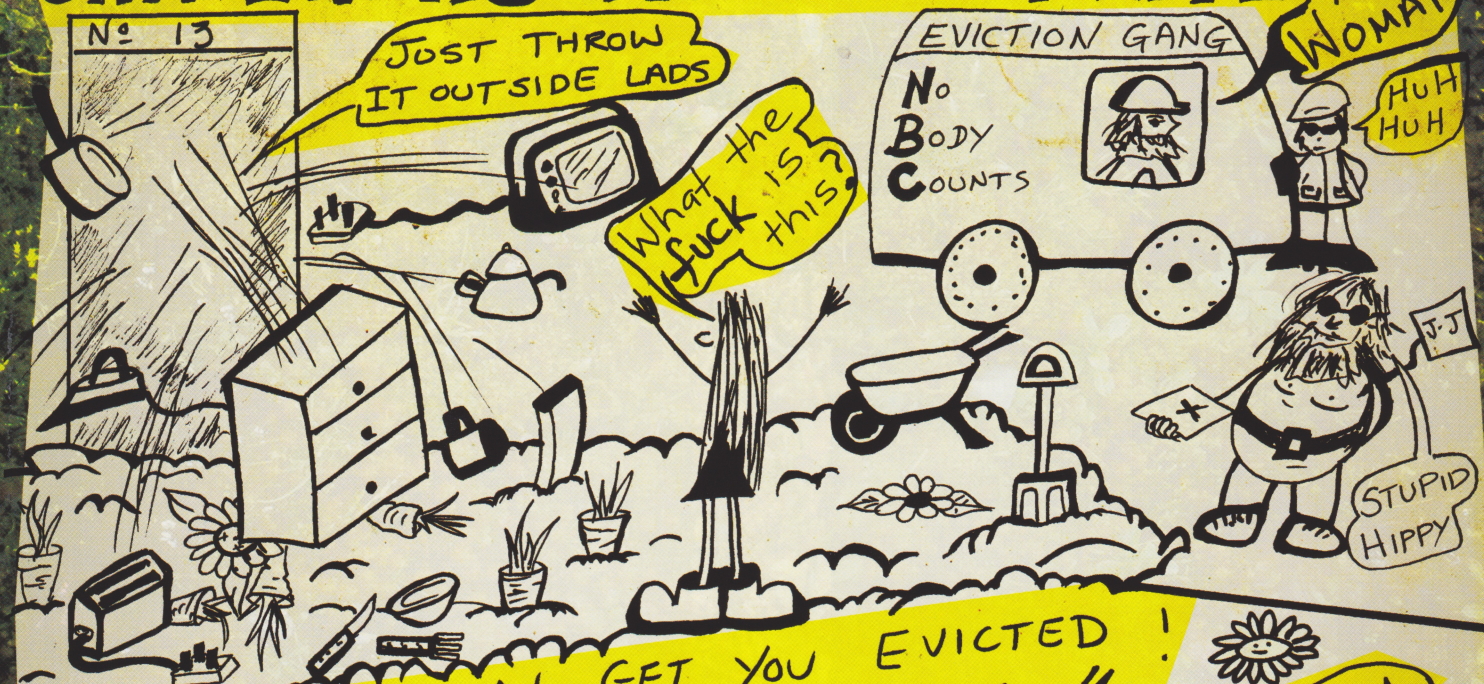 Nº 13
JUST THROW
IT OUTSIDE LADS
What the
fuck is
this?
EVICTION GANG
No
Body
Counts
HUH
HUH
J.J
X
STUPID
HIPPY
GET YOU EVICTED !